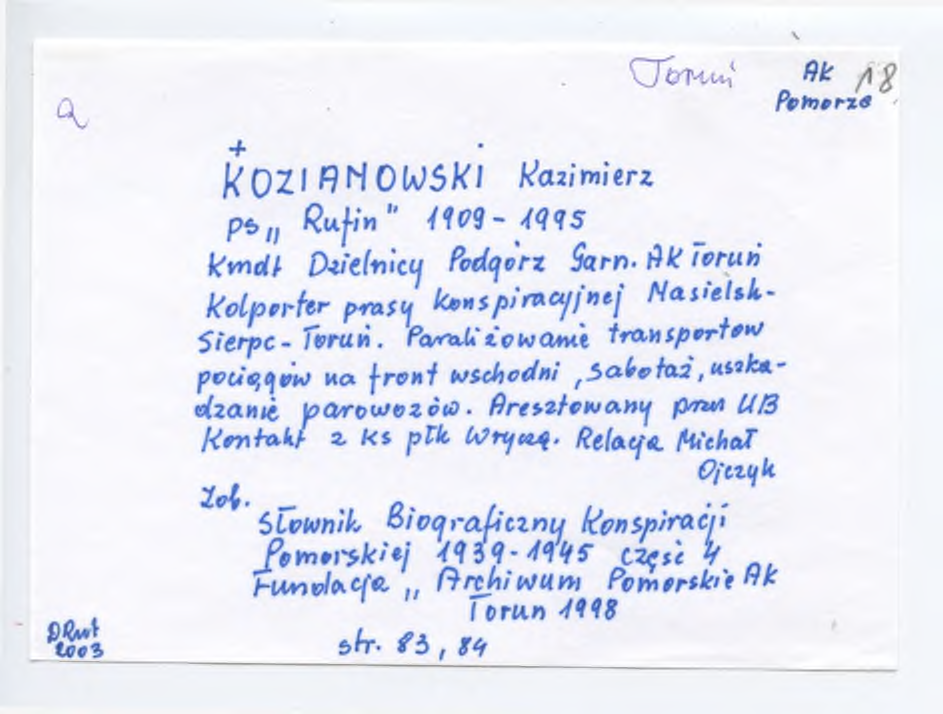 Toruń AK 18
Pomorze
a
+
KOZIANOWSKI Kazimierz
ps „ Rufin" 1909 - 1995
Kmdt Dzielnicy Podgórz Garn. AK Toruń
Kolporter prasy konspiracyjnej Nasielsk-
Sierpc - Toruń. Paraliżowanie transportow
pociągów na front wschodni, sabotaż, uszka-
dzanie parowozów. Aresztowany przez UB
Kontakt z ks płk Wryczą. Relacja Michał
Ojczyk
Zob.
Słownik Biograficzny Konspiracji
Pomorskiej 1939-1945 część 4
Fundacja „ Archiwum Pomorskie AK
Torun 1998
str. 83, 84
2003